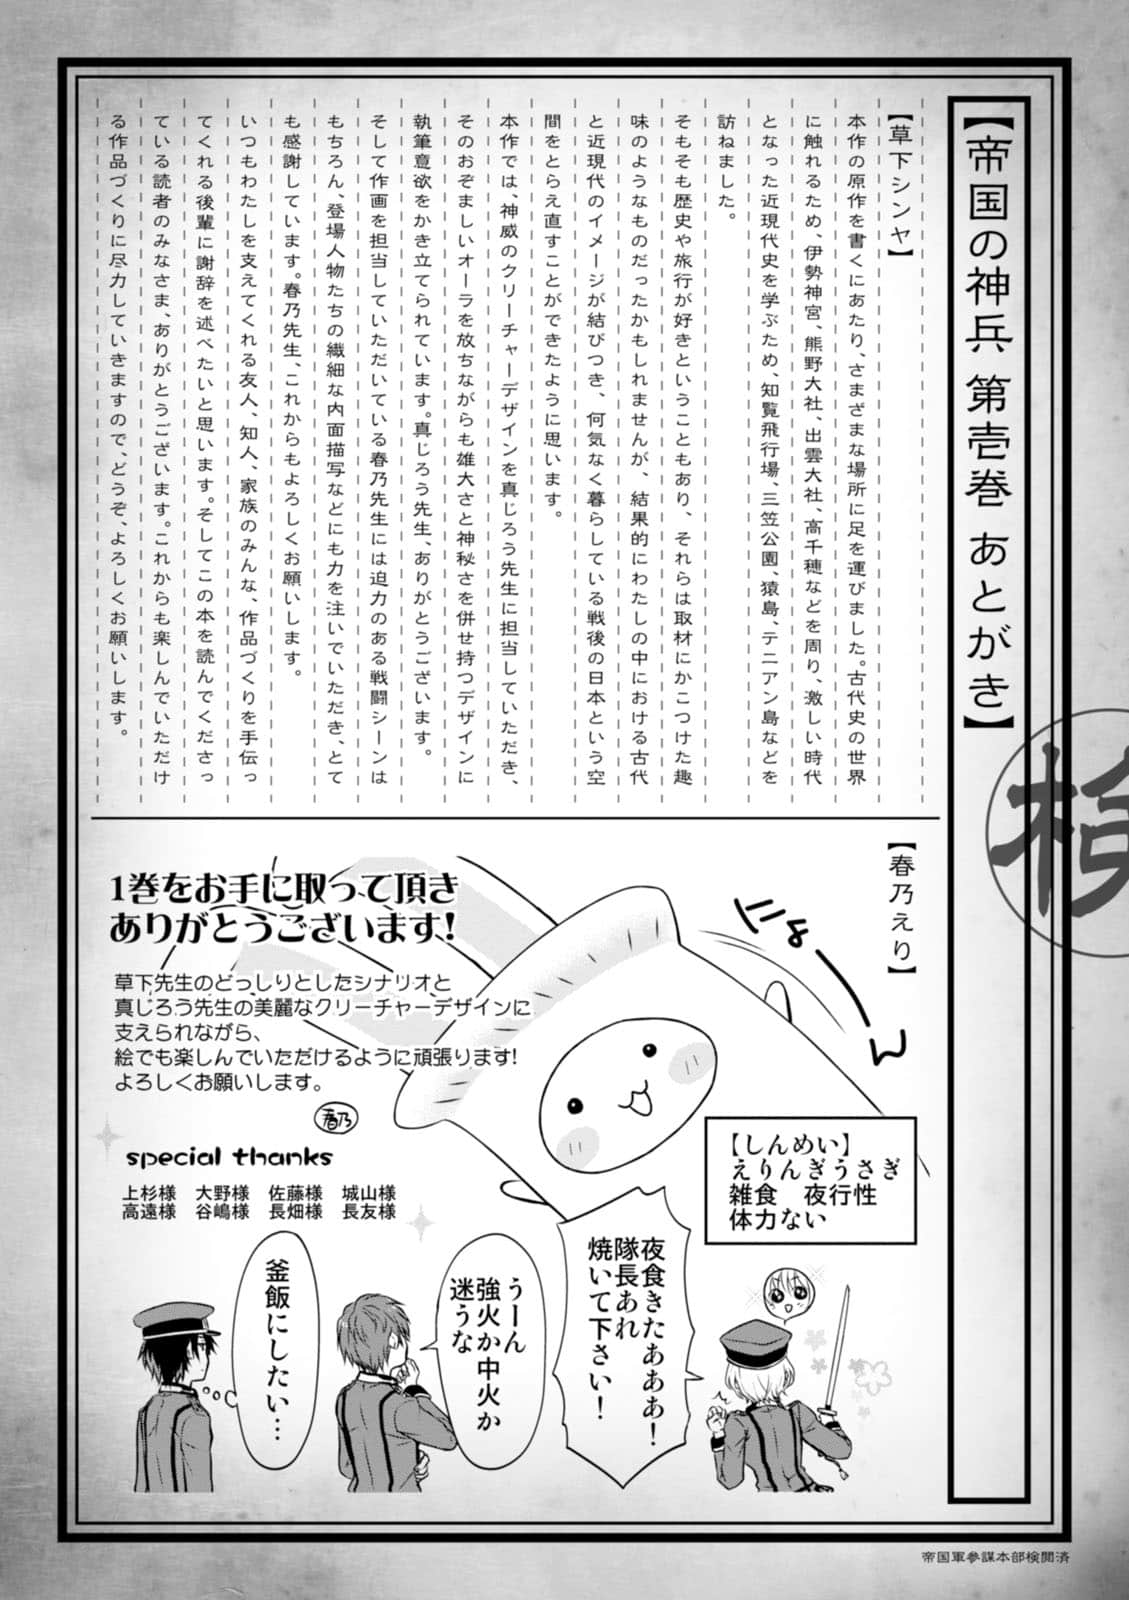 【帝国の神兵 第壱巻 あとがき】
【草下シンヤ】
本作の原作を書くにあたり、さまざまな場所に足を運びました。古代史の世界
に触れるため、伊勢神宮、熊野大社、出雲大社、高千穂などを周り、激しい時代
となった近現代史を学ぶため、知覧飛行場、三笠公園、猿島、テニアン島などを
訪ねました。
そもそも歴史や旅行が好きということもあり、それらは取材にかこつけた趣
味のようなものだったかもしれませんが、結果的にわたしの中における古代
と近現代のイメージが結びつき、何気なく暮らしている戦後の日本という空
間をとらえ直すことができたように思います。
本作では、神威のクリーチャーデザインを真じろう先生に担当していただき、
そのおぞましいオーラを放ちながらも雄大さと神秘さを併せ持つデザインに
執筆意欲をかき立てられています。真じろう先生、ありがとうございます。
そして作画を担当していただいている春乃先生には迫力のある戦闘シーンは
もちろん、登場人物たちの繊細な内面描写などにも力を注いでいただき、とて
も感謝しています。春乃先生、これからもよろしくお願いします。
いつもわたしを支えてくれる友人、知人、家族のみんな、作品づくりを手伝っ
てくれる後輩に謝辞を述べたいと思います。そしてこの本を読んでくださっ
ている読者のみなさま、ありがとうございます。これからも楽しんでいただけ
る作品づくりに尽力していきますので、どうぞ、よろしくお願いします。
【春乃えり】
にょーん
1巻をお手に取って頂き
ありがとうございます!
草下先生のどっしりとしたシナリオと
真じろう先生の美麗なクリーチャーデザインに
支えられながら、
絵でも楽しんでいただけるように頑張ります!
よろしくお願いします。
春乃
special thanks
上杉様 大野様 佐藤様 城山様
高遠様 谷嶋様 長畑様 長友様
【しんめい】
えりんぎうさぎ
雑食 夜行性
体力ない
夜食きたあああ!
隊長あれ
焼いて下さい!
うーん
強火か中火か
迷うな
釜飯にしたい…
検
帝国軍参謀本部検閲済